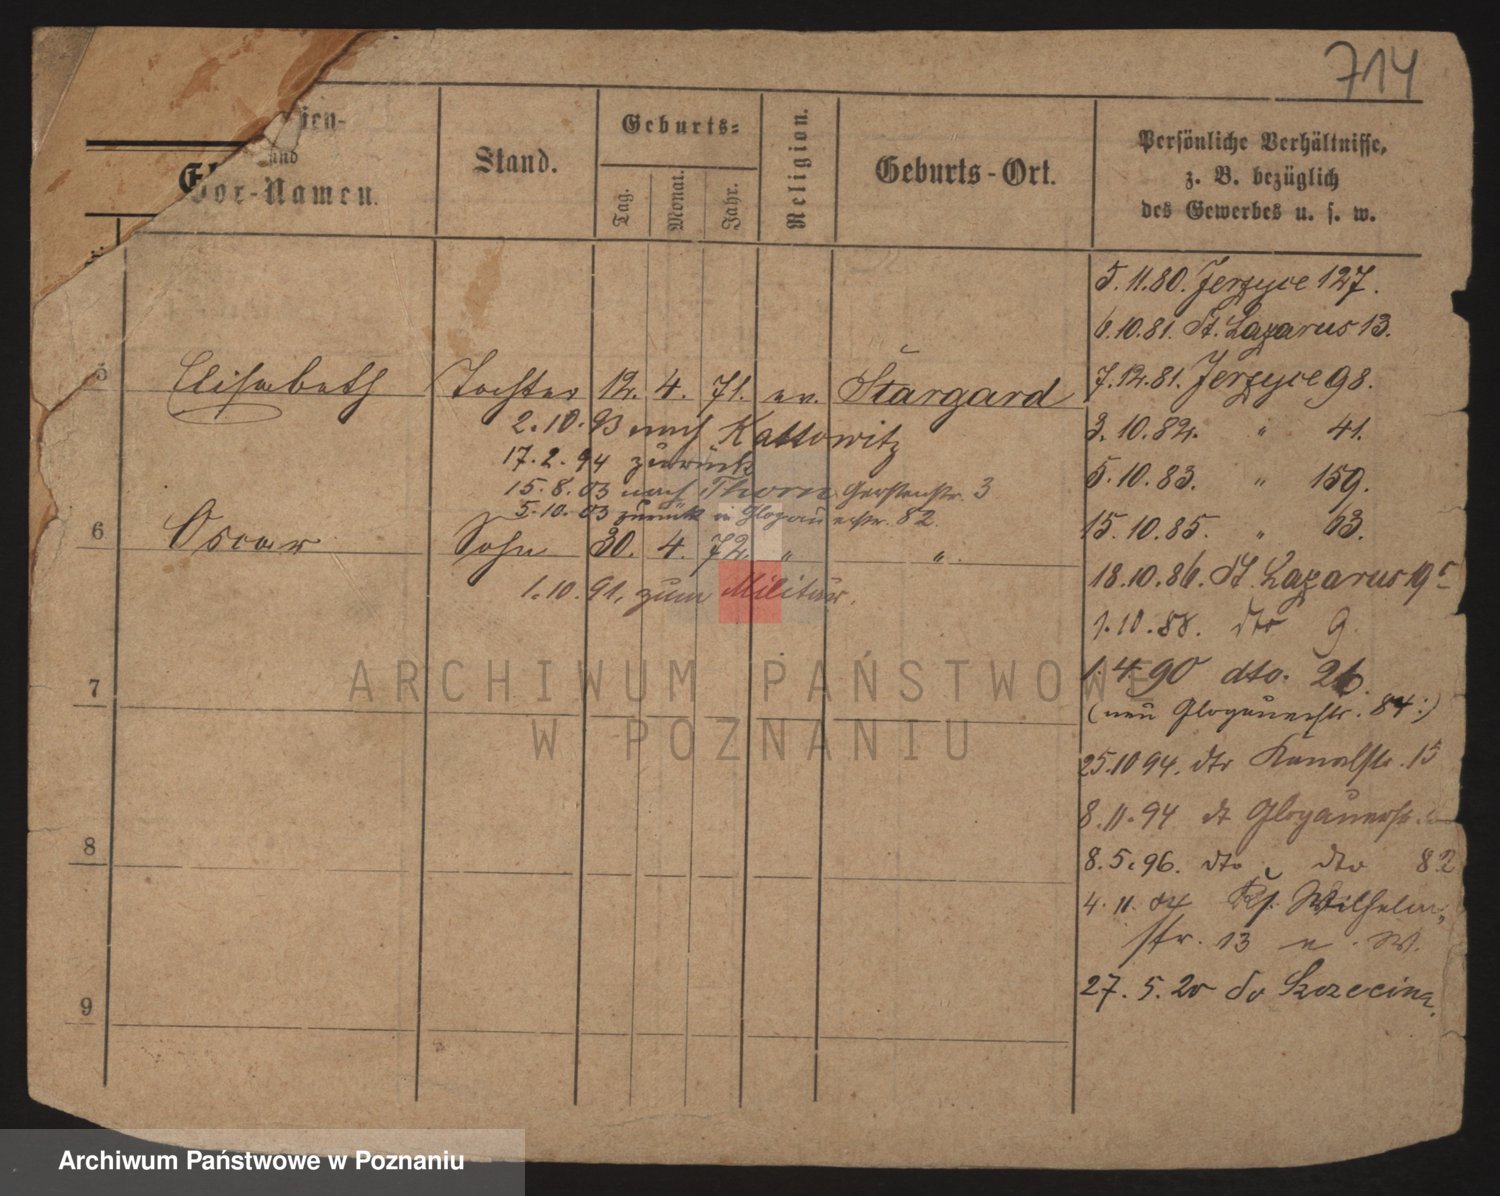 714
ien-
und
Vor-Namen.
Stand.
Geburts-
Tag.
Monat.
Jahr.
Religion.
Geburts-Ort.
Persönliche Verhältnisse,
z. B. bezüglich
des Gewerbes u. s. w.
5.11.80. Jerzyce 127.
6.10.81. St. Lazarus 13.
5 Elisabeth Tochter 12. 4. 71. ev. Stargard
7.12.81. Jerzyce 98.
2.10.93 nach Kattowitz
3.10.82. " 41.
17.2.94 zurück
5.10.83. " 159.
15.8.03 nach Thorn Gerstenstr. 3
5.10.03 zurück in Glogauerstr. 82.
15.10.85. " 63.
6 Oscar Sohn 30. 4. 72. " "
18.10.86. St. Lazarus 19
1.10.91. zum Militär.
1.10.88. dto 9.
7
1.4.90 dto. 26.
(neu Glogauerstr. 84:)
25.10.94. dto Kanalstr. 15
8.11.94 dt Glogauerstr.
8
8.5.96. dto dto 82
4.11. Wilhelm
str. 13 W.
9
27.5.20 do Szczecina.
ARCHIWUM PAŃSTWOWE
W POZNANIU
Archiwum Państwowe w Poznaniu